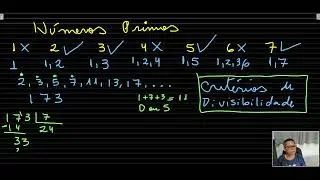 Números Primos
1 × 2 ✓ 3 ✓ 4 × 5 ✓ 6 × 7 ✓
1 1,2 1,3 1,2,4 1,5 1,2,3,6 1,7
2, 3, 5, 7, 11, 13, 17, ....
173
1+7+3 = 11
0 ou 5
Critérios de
Divisibilidade
173 7
-14 24
33